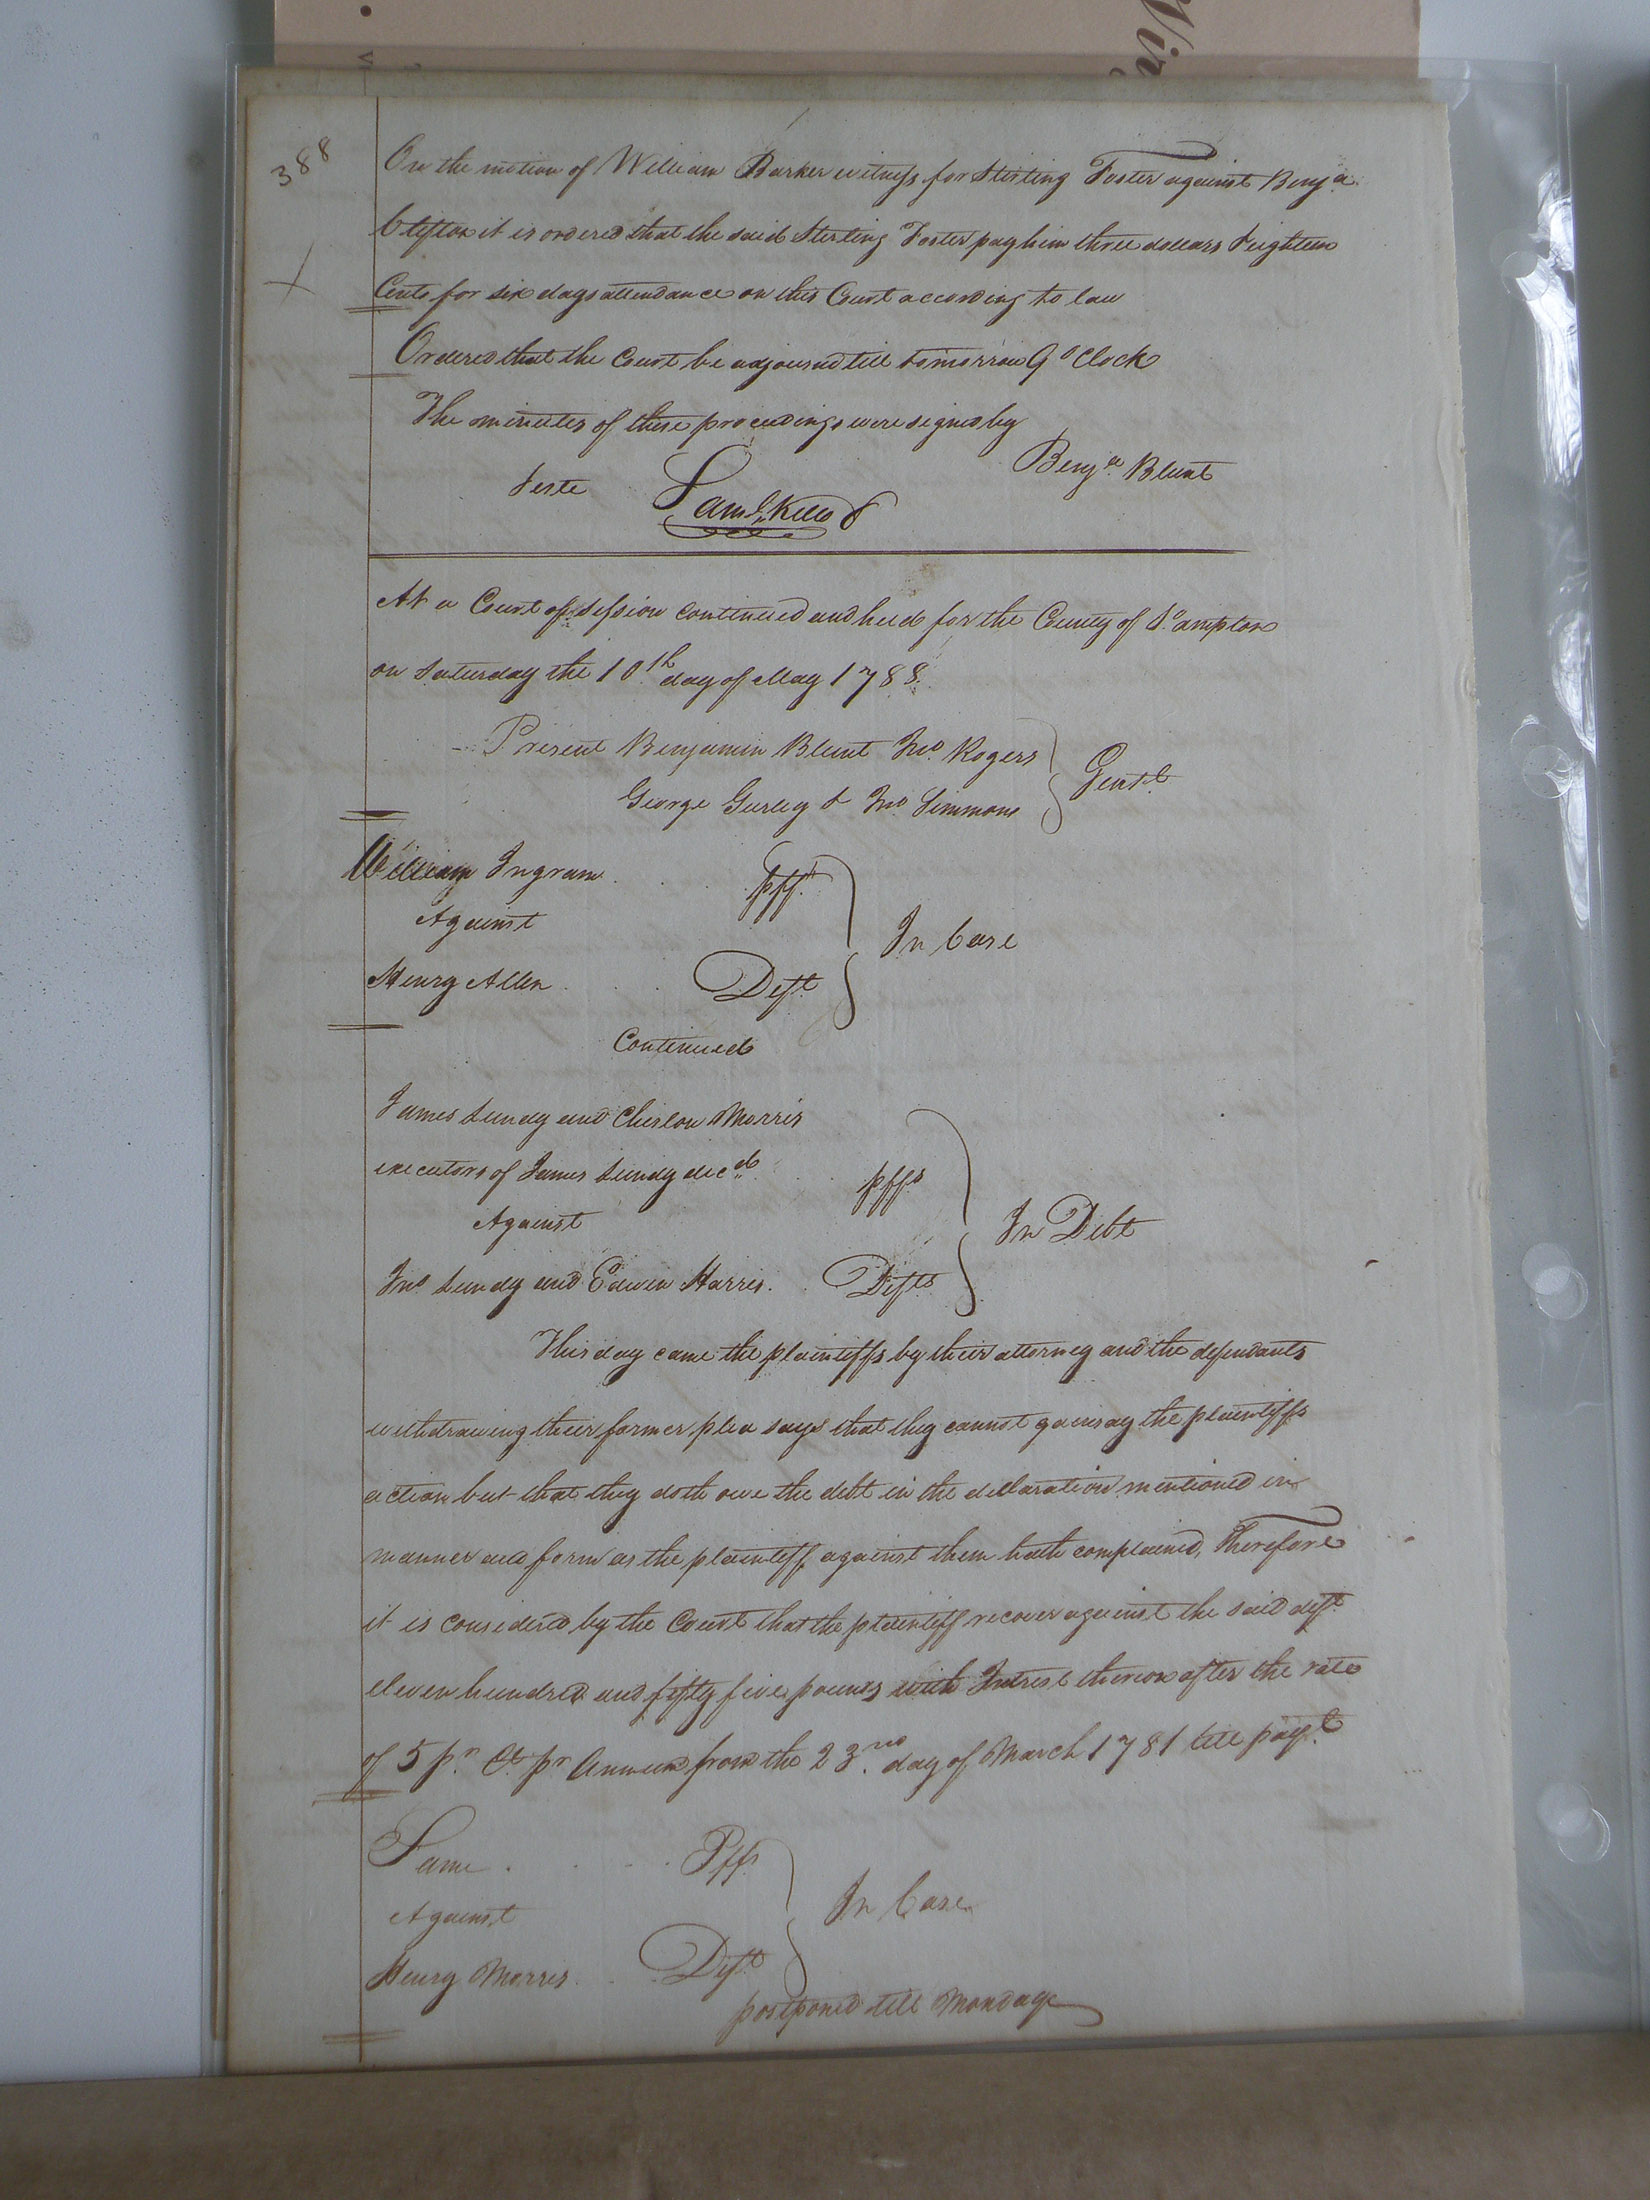 Win
388
On the motion of William Barker witness for Sterling Foster against Benja
Clifton it is ordered that the said Sterling Foster pay him three dollars & eighteen
Cents for six days attendance on this Court according to law
Ordered that the Court be adjourned till tomorrow 9 oClock
The minutes of these proceedings were signed by
Benja Blunt
Teste Saml. Kello
At a Court of Session continued and held for the County of So.ampton
on Saturday the 10th day of May 1788.
Present Benjamin Blunt Jno. Rogers
George Gurley & Jno Simmons Gentl.
William Ingram pff.
Against
In Case
Henry Allen Deft.
Continued
James Lundy and Cherlon Morris
executors of James Lundy decd. pffs
Against
In Debt
Jno. Lundy and Edwin Harris. Defts
This day came the plaintiffs by their attorney and the defendants
withdrawing their former plea says that they cannot gainsay the plaintiffs
action but that they doth owe the debt in the declaration mentioned in
manner and form as the plaintiff against them hath complained, Therefore
it is considered by the Court that the plaintiff recover against the said deft.
eleven hundred and fifty five pounds with Intrest thereon after the rate
of 5 pr. Ct. pr Annum from the 23.nd day of March 1781 till payt.
Same Pffs
Against
In Case
Henry Morris. Deft.
postponed till Monday